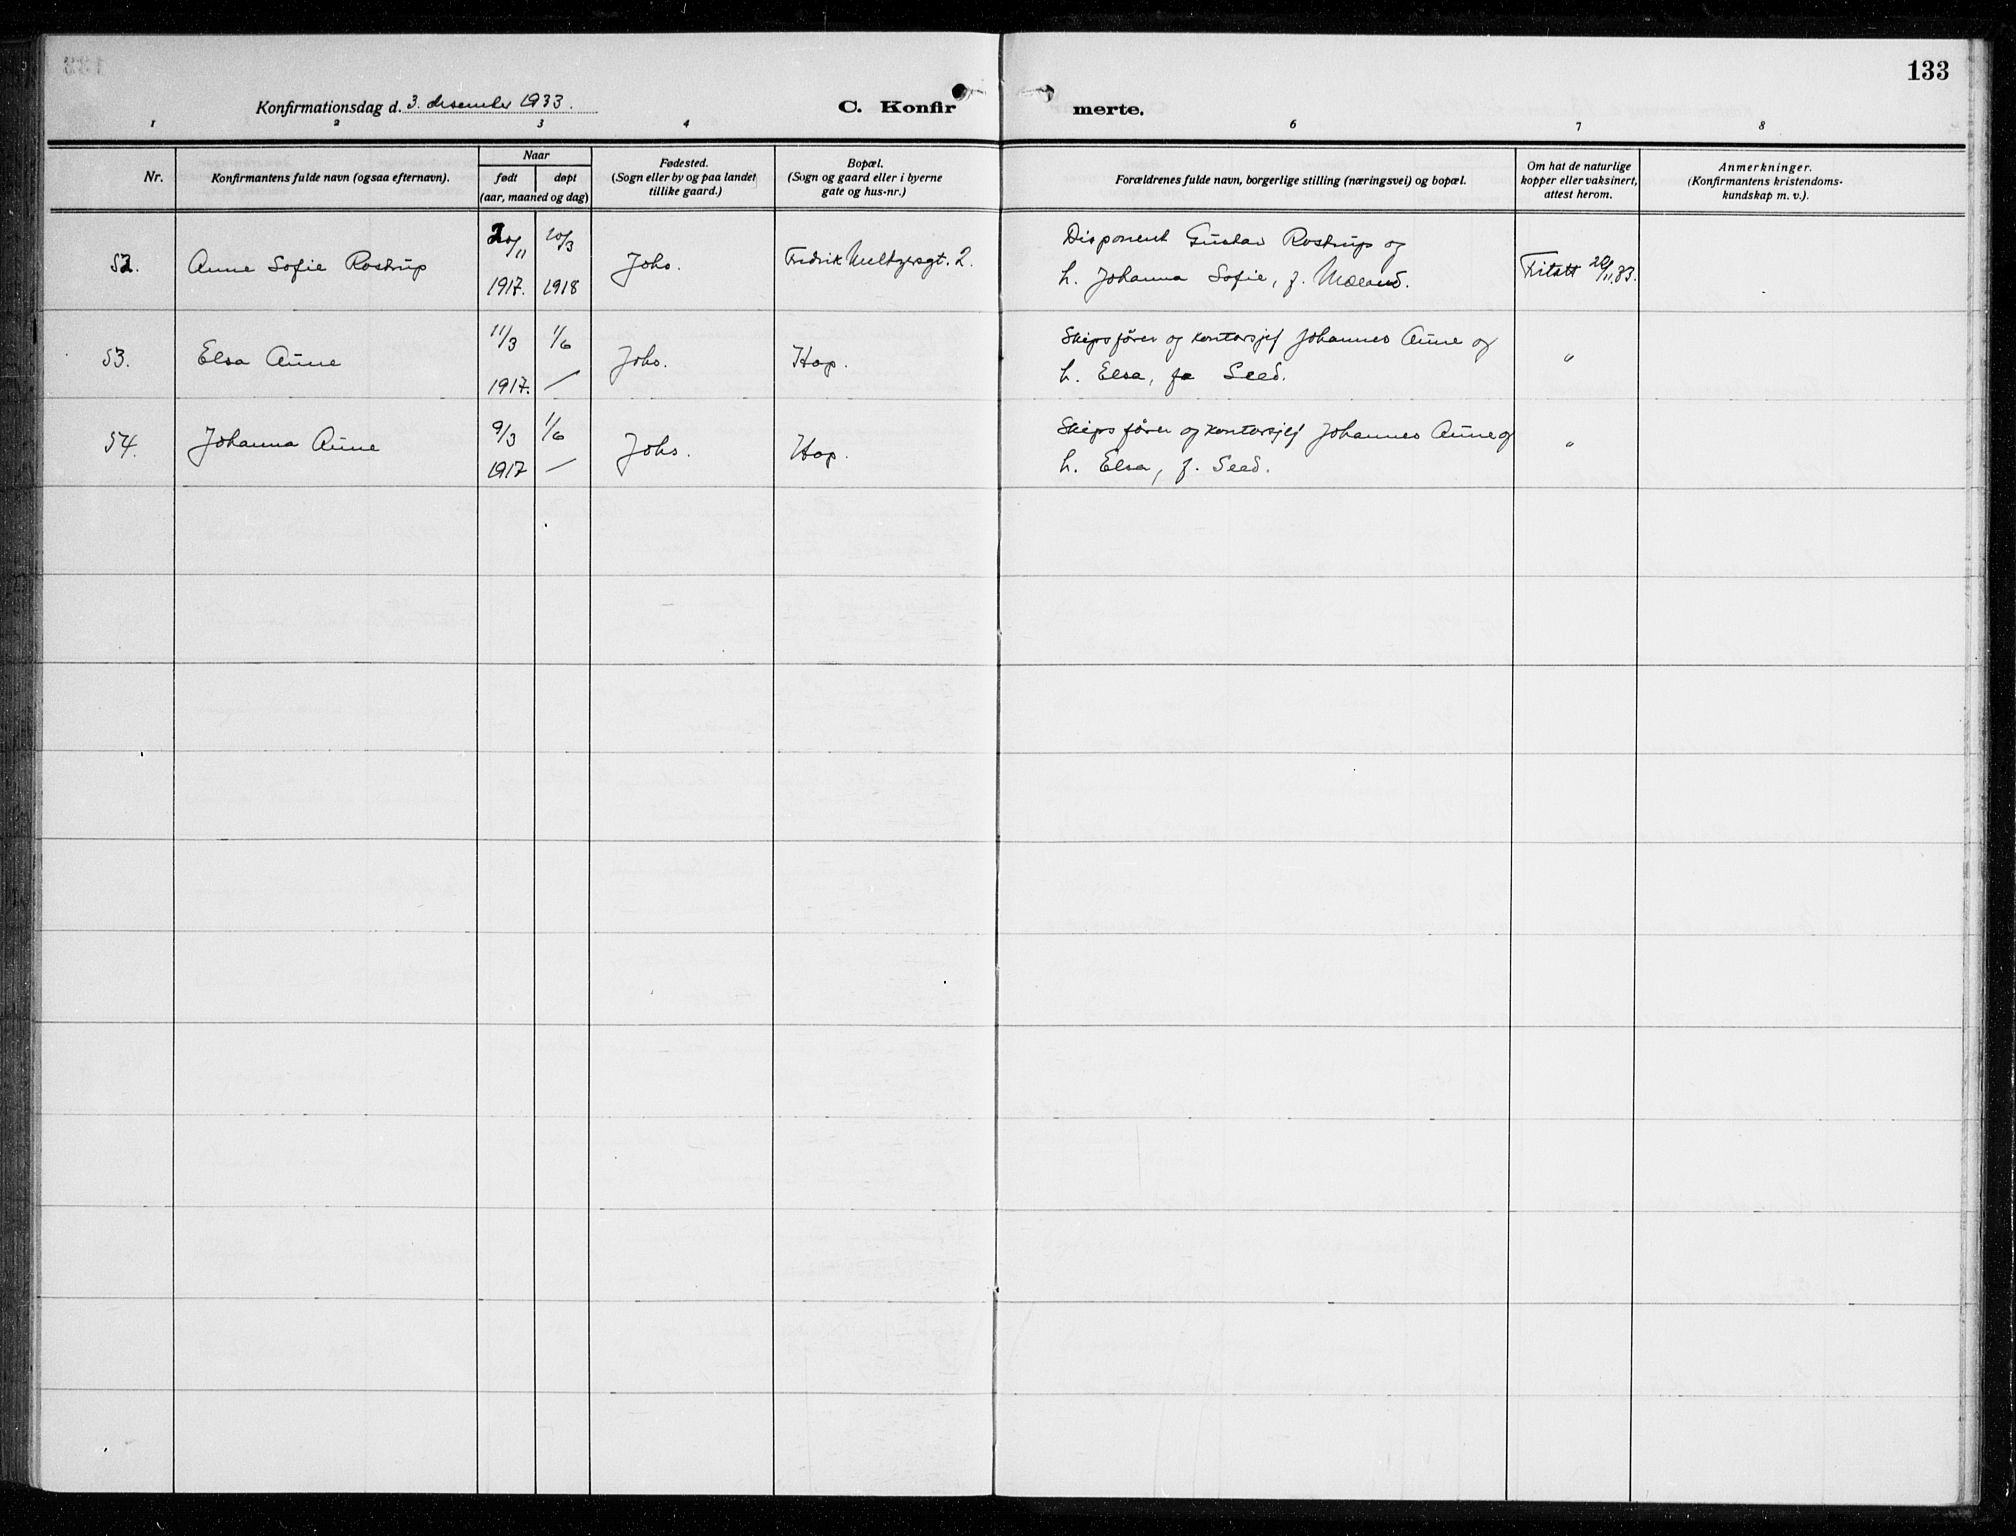 133
Konfirmationsdag d. 3. desember 1933.
C. Konfir merte.
1 2 3 4 6 7 8
Nr.
Konfirmantens fulde navn (ogsaa efternavn).
Naar
født døpt
(aar, maaned og dag)
Fødested.
(Sogn eller by og paa landet
tillike gaard.)
Bopæl.
(Sogn og gaard eller i byerne
gate og hus-nr.)
Forældrenes fulde navn, borgerlige stilling (næringsvei) og bopæl.
Om hat de naturlige
kopper eller vaksinert,
attest herom.
Anmerkninger.
(Konfirmantens kristendoms-
kundskap m. v.).
52. Anne Sofie Rostrup
20/11 1917.
10/3 1918
Johs.
Fredrik Meltzersgt. 2.
Disponent Gustav Rostrup og
h. Johanna Sofie, f. Mæland.
Fritatt 20/11.33.
53. Elsa Aune
11/3 1917.
1/6 —
Johs.
Hop.
Skipsfører og kontorsjef Johannes Aune og
h. Elsa, f. Seed.
"
54. Johanna Aune
9/3 1917
1/6 —
Johs.
Hop.
Skipsfører og kontorsjef Johannes Aune og
h. Elsa, f. Seed.
"